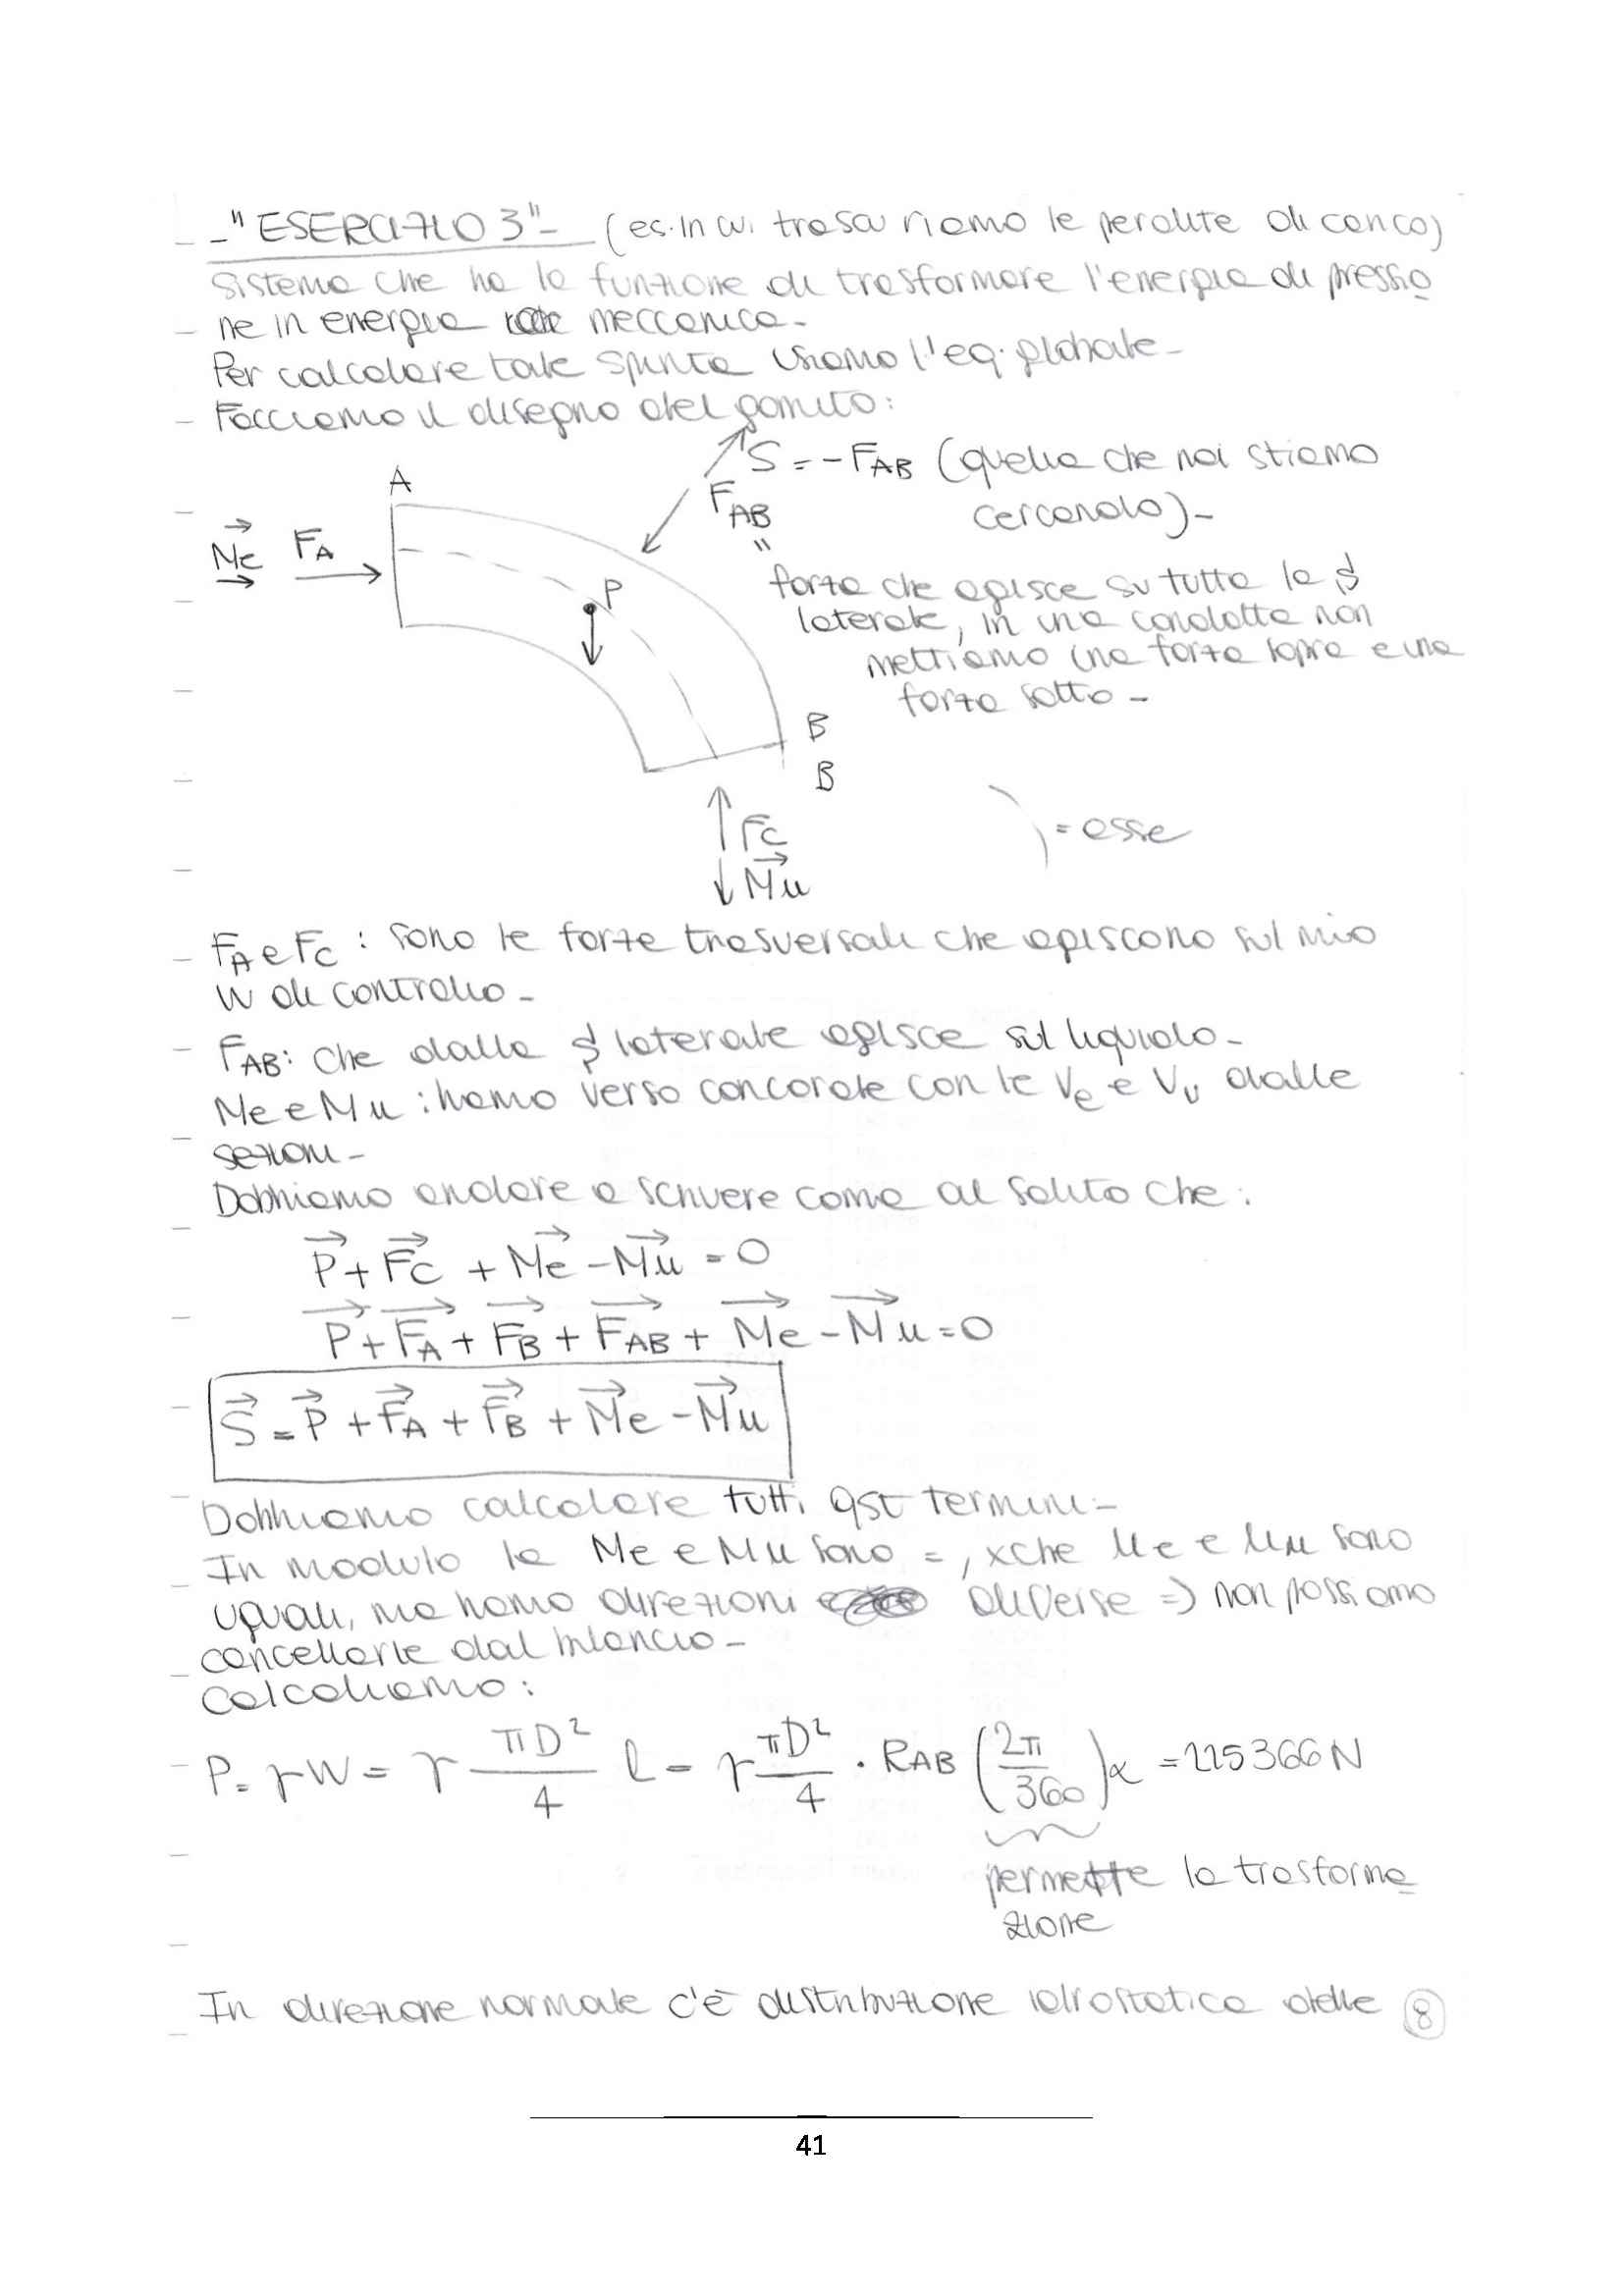 - "ESERCIZIO 3" - (es. in cui trascuriamo le perdite di carico)
sistema che ha la funzione di trasformare l'energia di pressio
ne in energia meccanica -
Per calcolare tale spinta usiamo l'eq. globale -
Facciamo il disegno del gomito:
S = - FAB (quella che noi stiamo
cercando) -
A
FAB
"
Me FA
P
forza che agisce su tutta la S
laterale, in una condotta non
mettiamo una forza sopra e una
forza sotto -
B
B
Fc
= asse
Mu
FA e FC : sono le forze trasversali che agiscono sul mio
W di controllo -
FAB: che dalla S laterale agisce sul liquido -
Me e Mu : hanno verso concorde con le Ve e Vu dalle
sezioni -
Dobbiamo andare a scrivere come al solito che:
P + FC + Me - Mu = 0
P + FA + FB + FAB + Me - Mu = 0
S = P + FA + FB + Me - Mu
Dobbiamo calcolare tutti qst termini -
In modulo le Me e Mu sono = , xche Me e Mu sono
uguali, ma hanno direzioni diverse => non possiamo
cancellarle dal bilancio -
Calcoliamo:
P = γW = γ πD²/4 l = γ πD²/4 · RAB (2π/360) α = 225366 N
permette la trasforma
zione
In direzione normale c'è distribuzione idrostatica delle 8
41